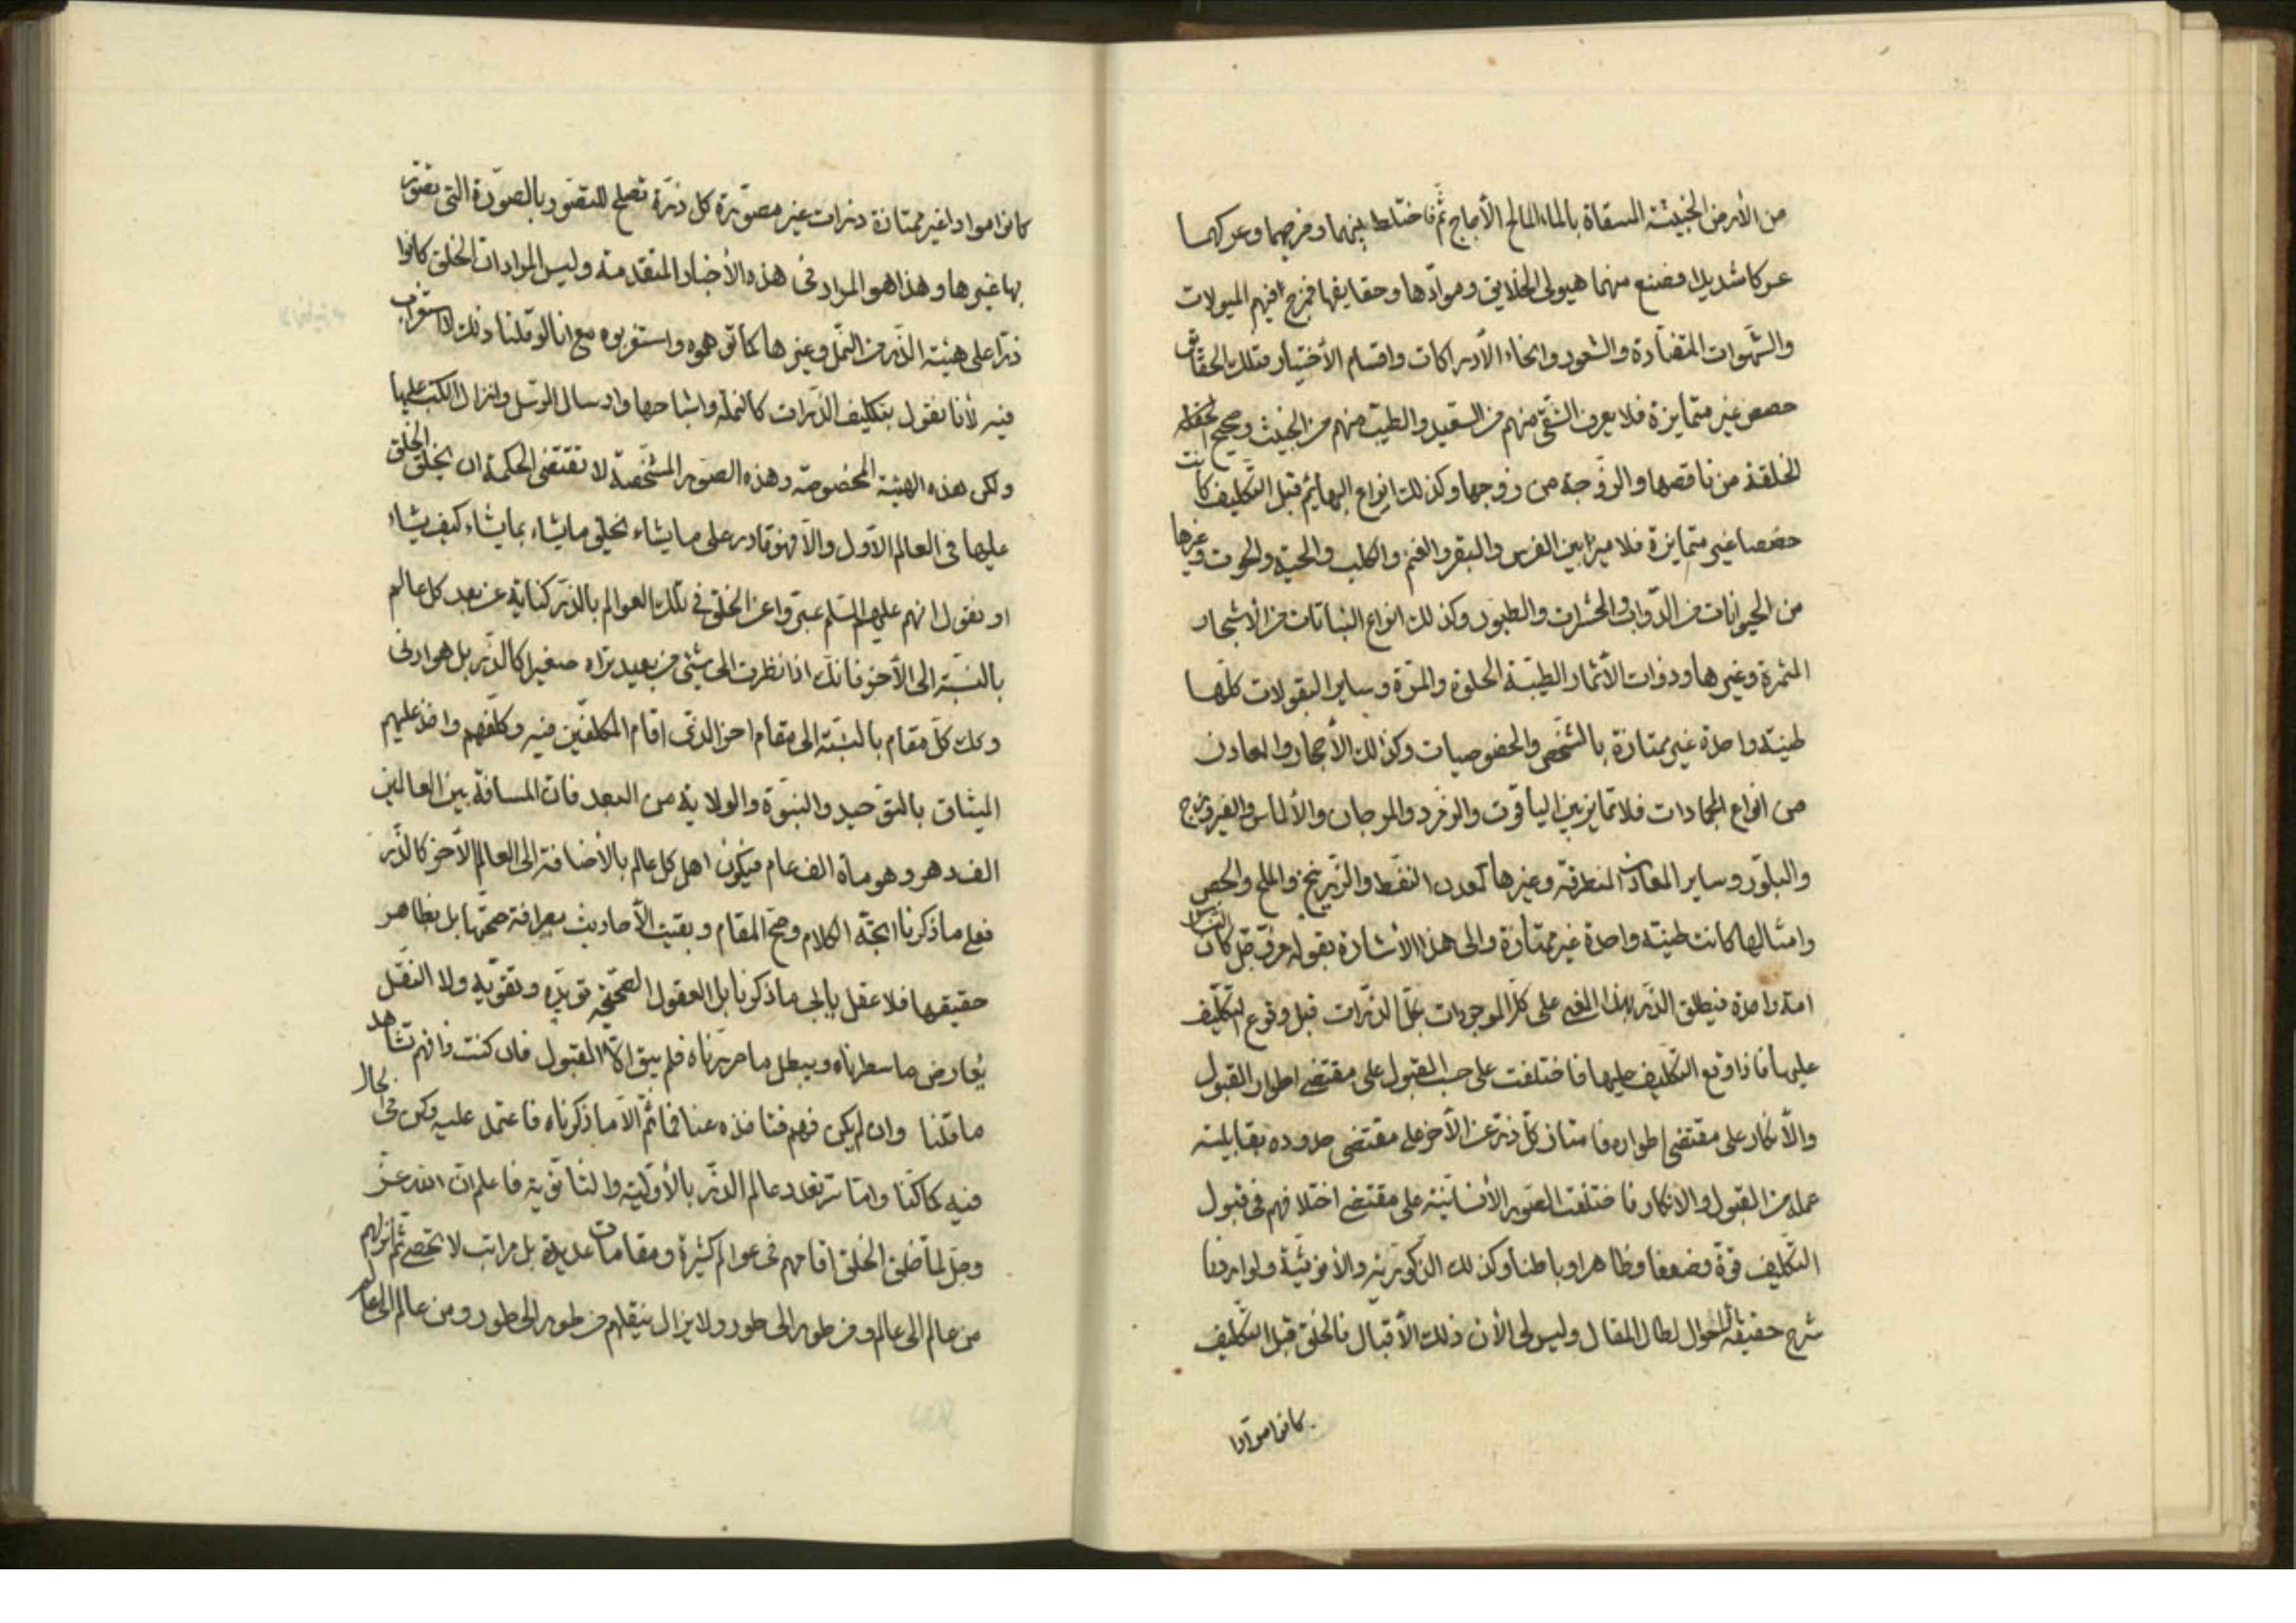 من الأرض الخبيثة المسقاة بالماء المالح الأجاج ثم فاختلط بينهما ومزجهما وعركهما
عركا شديدا فصنع منهما هيولى الخلايق وموادها وحقايقها فمزج فيهم الميولات
والشهوات المتضادة والشعور وانحاء الأدراكات واقسام الأختيار فتلك الحقائق
حصص غير متمايزة فلا يعرف الشقي منهم من السعيد والطيب منهم من الخبيث وصحيح
الخلقة من ناقصها والزوجة من زوجها وكذلك انواع البهائم قبل التكليف كانت
حصصا غير متمايزة فلا ميز بين الفرس والبقر والغنم والكلب والحية والحوت وغيرها
من الحيوانات من الدواب والحشرات والطيور وكذلك انواع النباتات من الأشجار
المثمرة وغيرها وذوات الأثمار الطيبة الحلوة والمرة وساير البقولات كلها
طينة واحدة غير ممتازة بالتشخص والخصوصيات وكذلك الأحجار والمعادن
من انواع الجمادات فلا تمايز بين الياقوت والزمرد والمرجان والألماس والفيروزج
والبلور وساير المعادن المنطرقة وغيرها كمعدن النفط والزرنيخ والملح والجص
وامثالها كانت طينة واحدة غير ممتازة والى هذا الأشارة بقوله عز وجل كان الناس
امة واحدة فيطلق الذر بهذا المعنى على كل الموجودات بكل الذرات قبل وقوع التكليف
عليها فاذا وقع التكليف عليها فاختلفت على حسب القبول على مقتضى اطوار القبول
والأنكار على مقتضى اطواره فامتاز كل ذرة عن الأخر على مقتضى حدوده بقابلية
عمله من القبول والانكار فاختلفت الصور الأنسانية على مقتضى اختلافهم في قبول
التكليف قوة وضعفا وظاهرا وباطنا وكذلك الذكورية والأنوثية ولو اردنا
شرح حقيقة الأحوال لطال المقال وليس لي الأن ذلك الأقبال فالخلق قبل التكليف
كانوا موادا
كانوا موادا غير ممتازة ذرات غير مصورة كل ذرة تصلح للتصور بالصورة التي تصور
بها غيرها وهذا هو المراد في هذه الأخبار المتقدمة وليس المراد ان الخلق كانوا
ذرا على هيئة الذر من النمل وغيرها كما توهموه واستغربوه مع انا لو قلنا ذلك لا استغراب
فيه لأنا نقول بتكليف الذرات كالنملة واشباهها وارسال الرسل وانزال الكتب عليها
ولكن هذه الهيئة المخصوصة وهذه الصور المشخصة لا تقتضي الحكمة ان يخلق الخلق
عليها في العالم الأول والا فهو قادر على ما يشاء يخلق ما يشاء بما يشاء كيف يشاء
او نقول انهم عليهم السلم عبروا عن الخلق في تلك العوالم بالذر كناية عن بعد كل عالم
بالنسبة الى الأخر فانك اذا نظرت الى شيئ من بعيد تراه صغيرا كالذر بل هو ادنى
وكك كل مقام بالنسبة الى مقام اخر الذي اقام المكلفين فيه وكلفهم واخذ عليهم
الميثاق بالتوحيد والنبوة والولاية من البعد فان المسافة بين العالمين
الف دهر وهو مأة الف عام فيكون اهل كل عالم بالأضافة الى العالم الأخر كالذر
فعلى ما ذكرنا اتجه الكلام وصح المقام وبقيت الأحاديث بصرافة صحتها بل بظاهر
حقيقتها فلا عقل يأبى ما ذكرنا بل العقول الصحيحة تؤيده وتقويه ولا النقل
يعارض ما سطرناه ويبطل ما حررناه فلم يبق الا القبول فان كنت ذا فهم تشاهد
ما قلنا وان لم يكن فهم فتأخذه عنا فما ثم الا ما ذكرناه فاعتمد عليه وكن في الحال
فيه كما كنا واما سر تعدد عالم الذر بالأولية والثانوية فاعلم ان الله عز
وجل لما خلق الخلق اقامهم في عوالم كثيرة ومقامات عديدة بل مراتب لا تحصى ثم انزلهم
من عالم الى عالم ومن طور الى طور ولا يزال ينقلهم من طور الى طور ومن عالم الى عالم